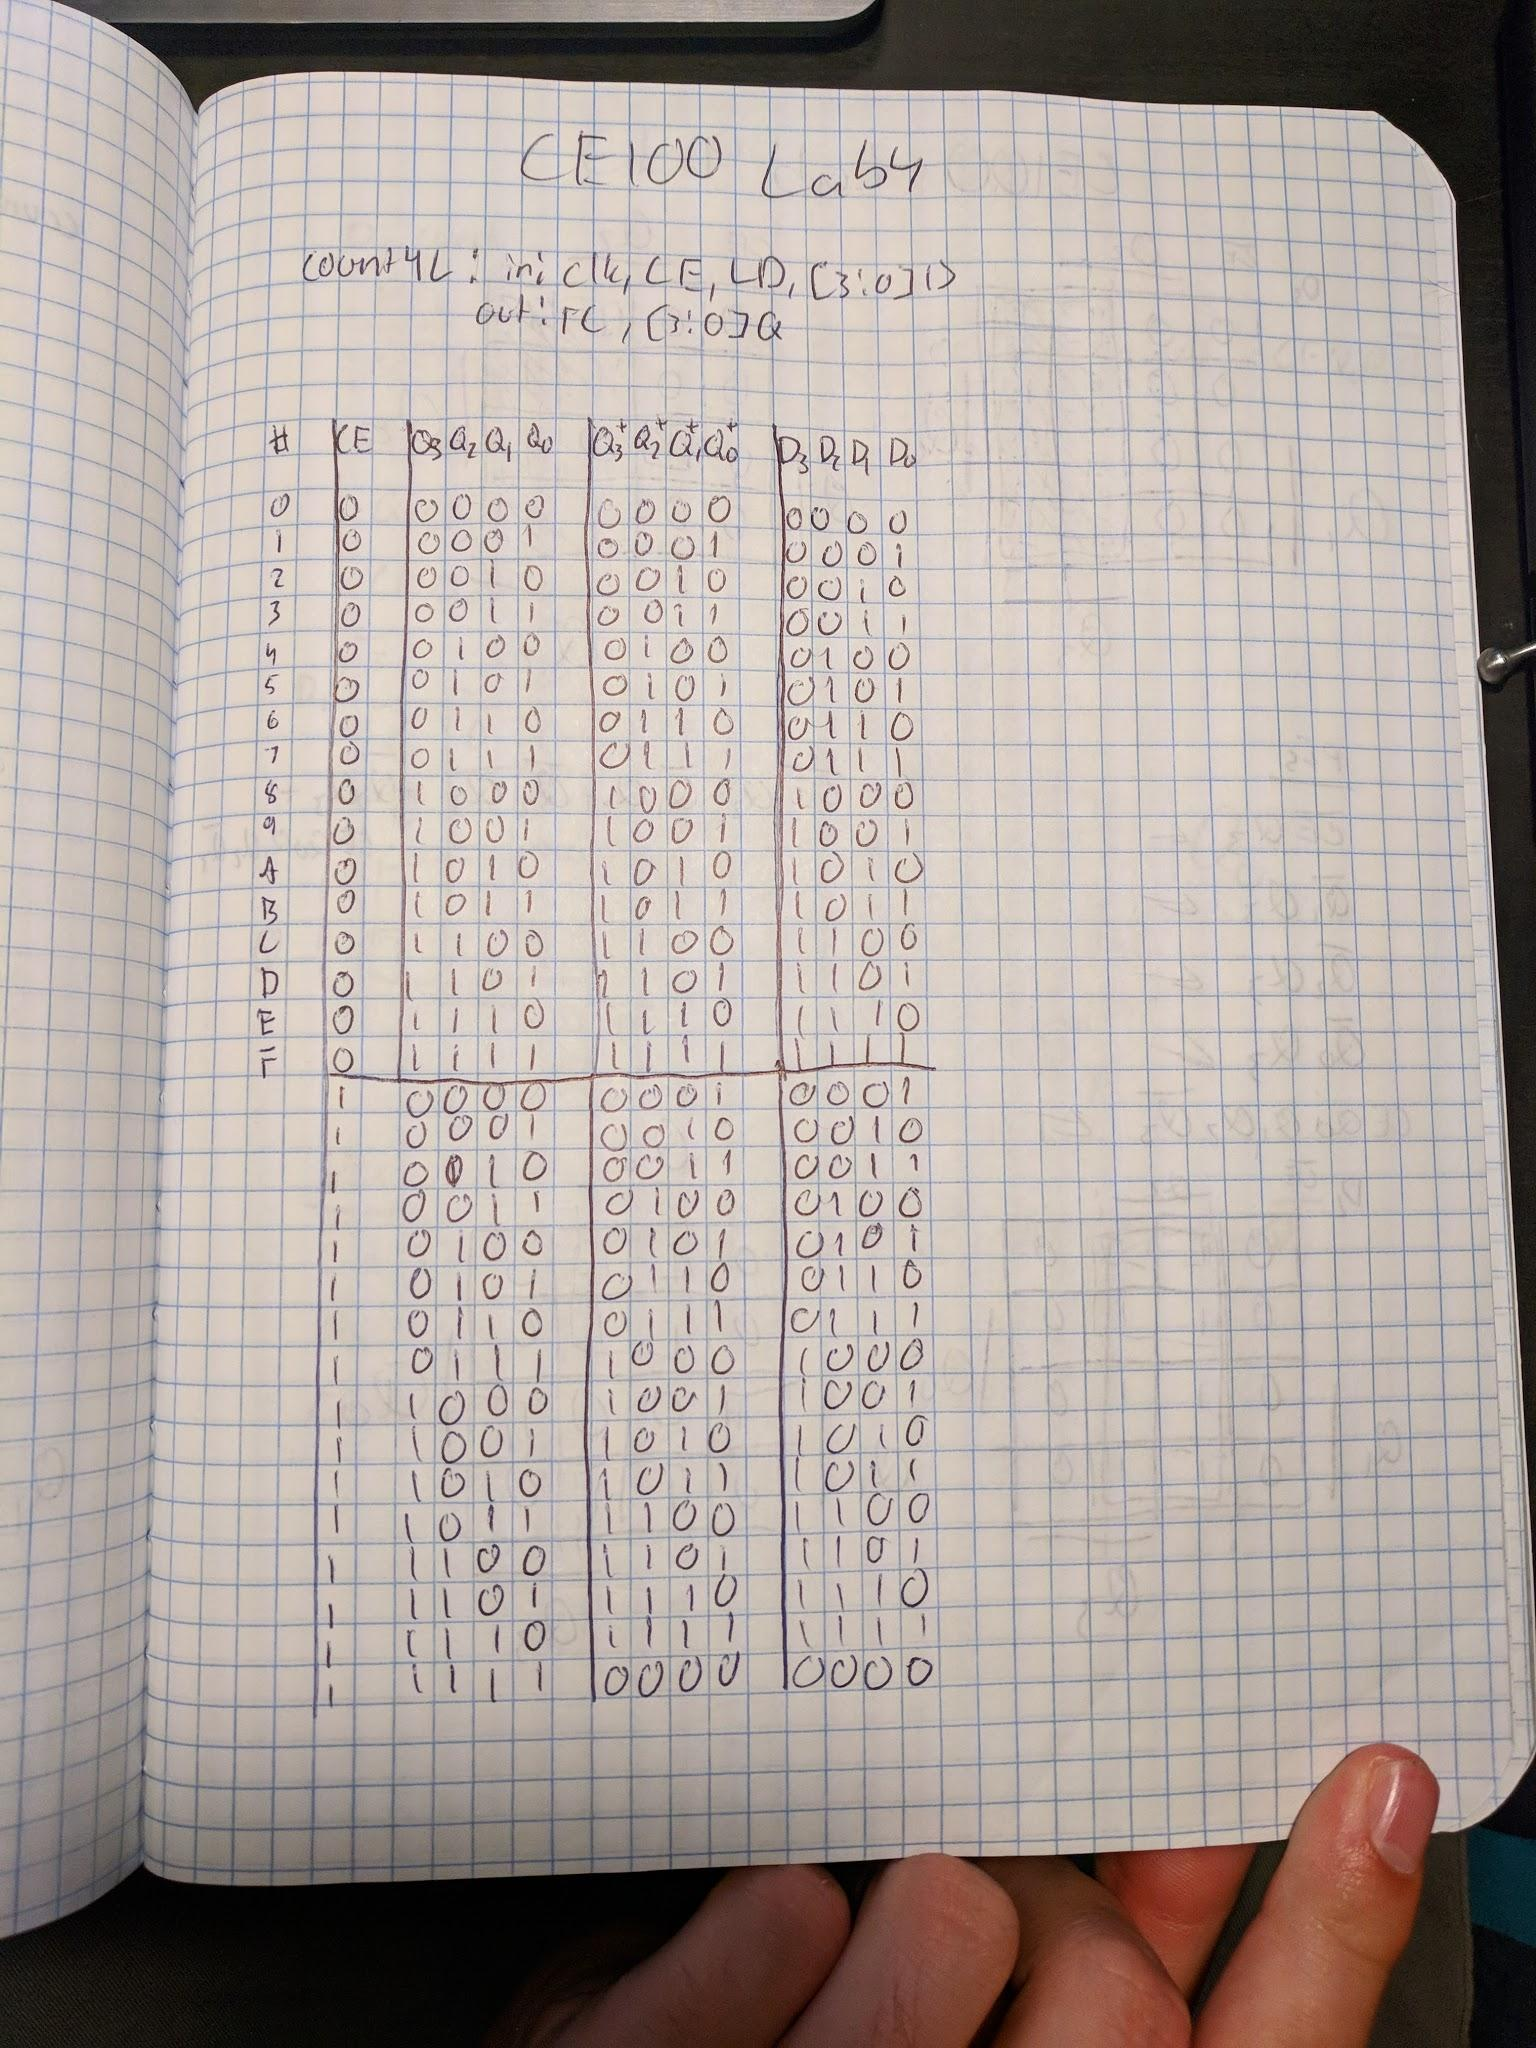 CE100 Lab4
count4L: in: clk, CE, LD, [3:0]D
out: TC, [3:0]Q
# CE Q3 Q2 Q1 Q0 Q3+ Q2+ Q1+ Q0+ D3 D2 D1 D0
0 0 0 0 0 0 0 0 0 0 0 0 0 0
1 0 0 0 0 1 0 0 0 1 0 0 0 1
2 0 0 0 1 0 0 0 1 0 0 0 1 0
3 0 0 0 1 1 0 0 1 1 0 0 1 1
4 0 0 1 0 0 0 1 0 0 0 1 0 0
5 0 0 1 0 1 0 1 0 1 0 1 0 1
6 0 0 1 1 0 0 1 1 0 0 1 1 0
7 0 0 1 1 1 0 1 1 1 0 1 1 1
8 0 1 0 0 0 1 0 0 0 1 0 0 0
9 0 1 0 0 1 1 0 0 1 1 0 0 1
A 0 1 0 1 0 1 0 1 0 1 0 1 0
B 0 1 0 1 1 1 0 1 1 1 0 1 1
C 0 1 1 0 0 1 1 0 0 1 1 0 0
D 0 1 1 0 1 1 1 0 1 1 1 0 1
E 0 1 1 1 0 1 1 1 0 1 1 1 0
F 0 1 1 1 1 1 1 1 1 1 1 1 1
1 0 0 0 0 0 0 0 1 0 0 0 1
1 0 0 0 1 0 0 1 0 0 0 1 0
1 0 0 1 0 0 0 1 1 0 0 1 1
1 0 0 1 1 0 1 0 0 0 1 0 0
1 0 1 0 0 0 1 0 1 0 1 0 1
1 0 1 0 1 0 1 1 0 0 1 1 0
1 0 1 1 0 0 1 1 1 0 1 1 1
1 0 1 1 1 1 0 0 0 1 0 0 0
1 1 0 0 0 1 0 0 1 1 0 0 1
1 1 0 0 1 1 0 1 0 1 0 1 0
1 1 0 1 0 1 0 1 1 1 0 1 1
1 1 0 1 1 1 1 0 0 1 1 0 0
1 1 1 0 0 1 1 0 1 1 1 0 1
1 1 1 0 1 1 1 1 0 1 1 1 0
1 1 1 1 0 1 1 1 1 1 1 1 1
1 1 1 1 1 0 0 0 0 0 0 0 0